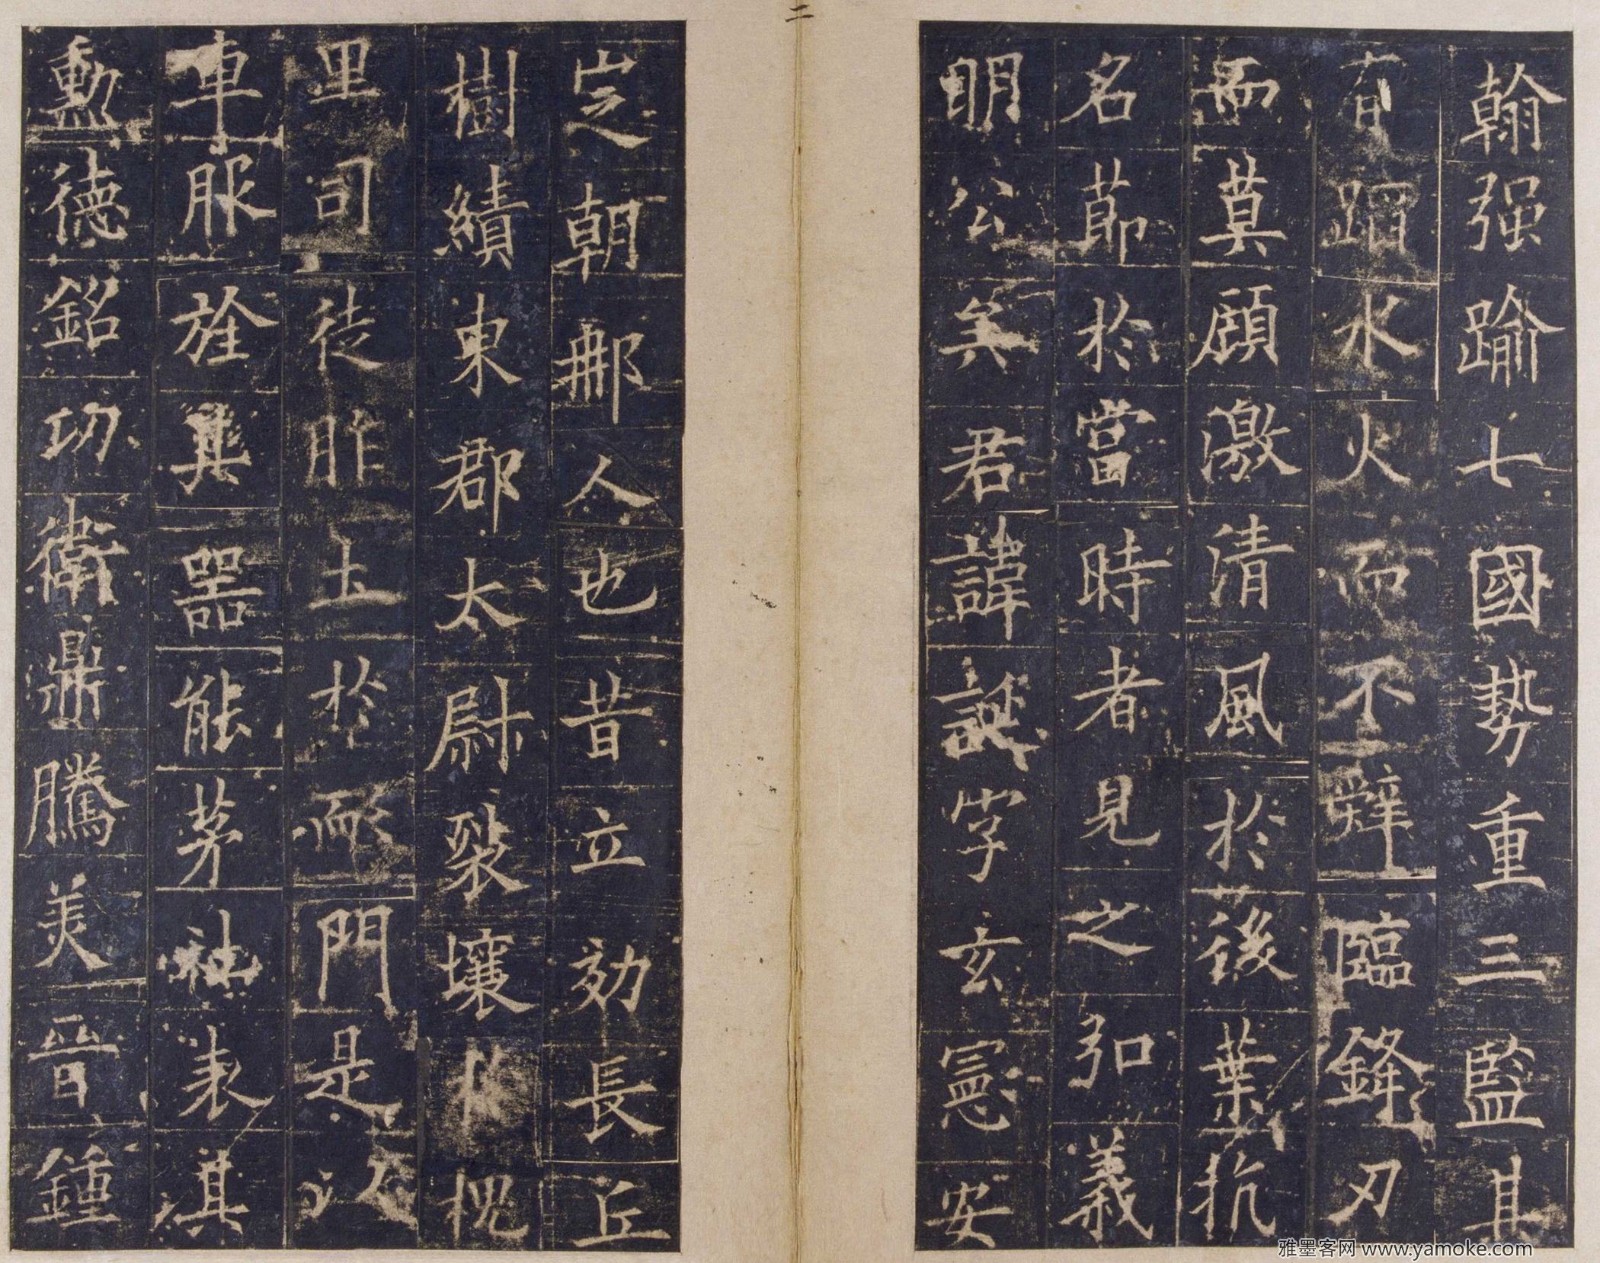 二
翰强踰七國勢重三監其
有蹈水火而不辭臨鋒刃
而莫顧激清風於後葉抗
名節於當時者見之弘義
明公矣君諱誕字玄憲安
定朝那人也昔立効長丘
樹績東郡太尉裂壤於槐
里司徒胙土於耏門是以
車服旌其器能茅社表其
勲德銘功衛鼎騰美晉鍾
雅墨客网 www.yamoke.com